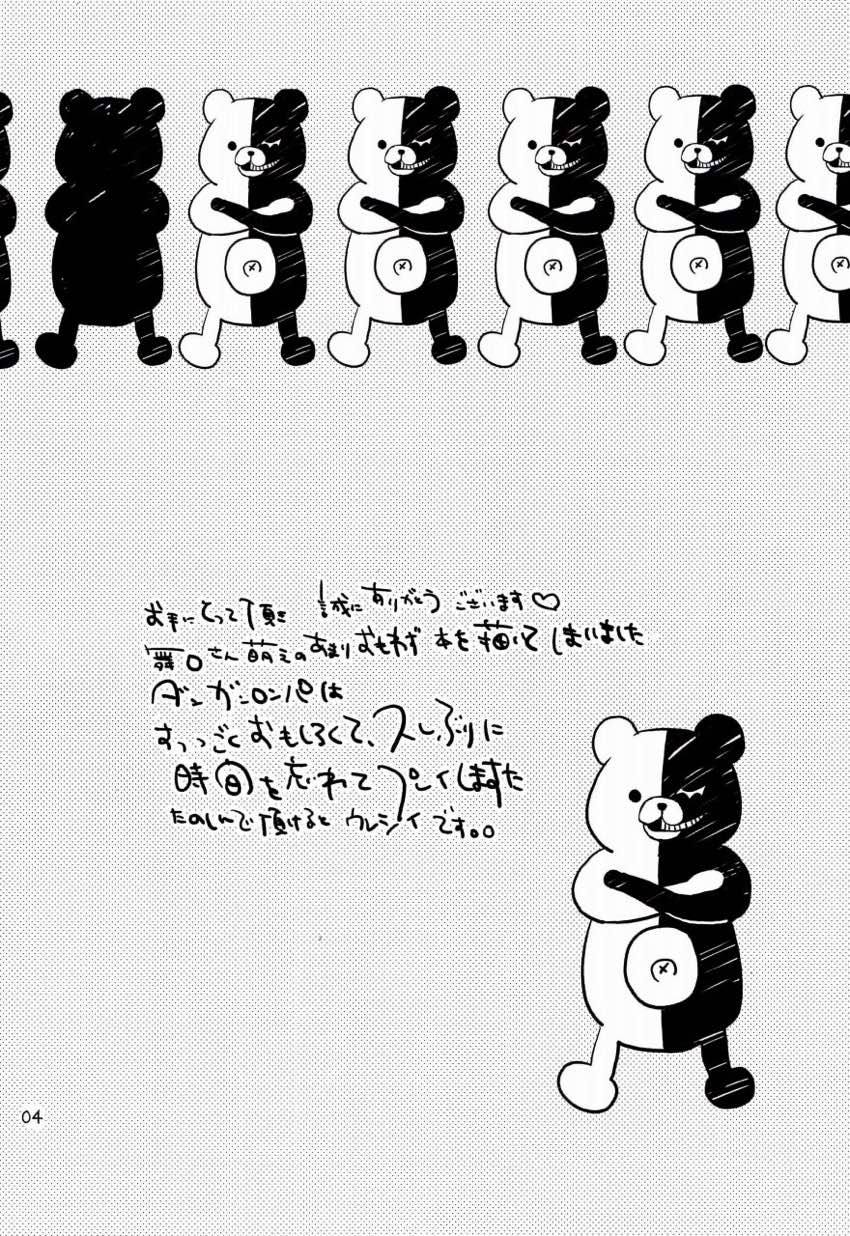 お手にとって頂き 誠にありがとう ございます♡
舞園さん萌えのあまりおもわず 本を描いてしまいました
ダンガンロンパは
すっっごくおもしろくて、久しぶりに
時間を忘れてプレイしました
たのしんで頂けると ウレシイです。。
04